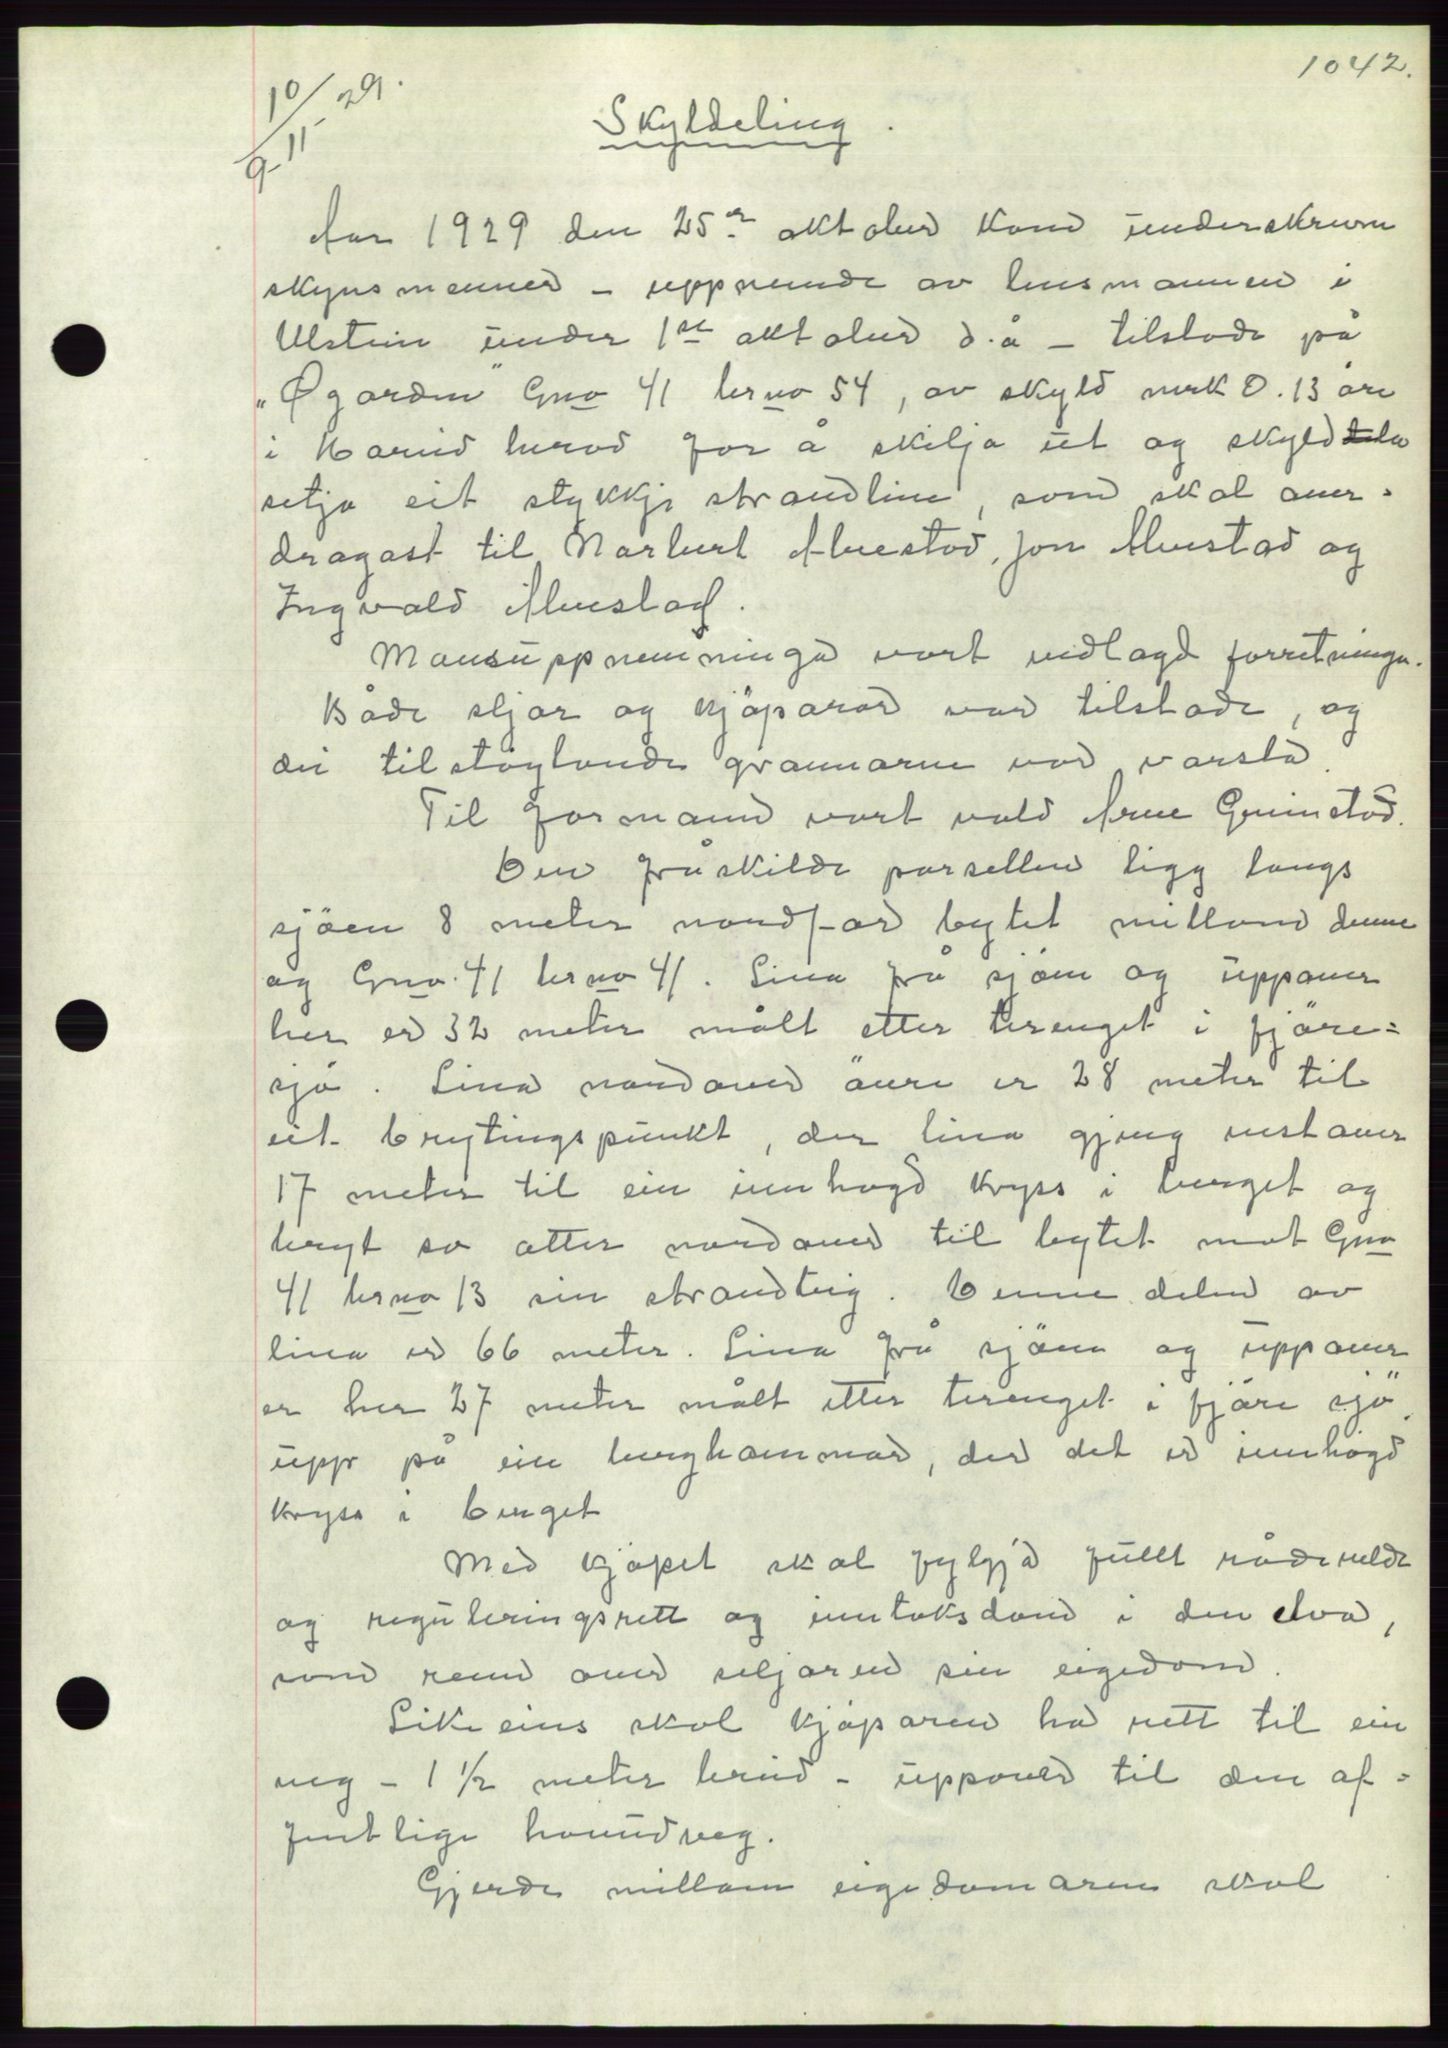 1042.
10/9-11-29.
Skyldeling.
Aar 1929 den 25de oktober kom underskrivne
skynsmenner - uppnemde av lensmannen i
Ulstein under 1ste oktober d.å - tilstede på
"Øgarden" Gno 41 brno 54, av skyld mrk 0.13 øre
i Hareid herad for å skilja ut og skyld dela
setja eit stykkje strandline, som skal over-
dragast til Norbert Alvestad, Jon Alvestad og
Ingvald Alvestad.
Mansuppnemninga vart vidlagd forretninga.
Både seljar og kjöparar var tilstade, og
dei tilstøytande grannarne var varsla.
Til formann vart vald Arne Grimstad.
Den fråskilde parsellen ligg langs
sjöen 8 meter nordfor bytet millom denne
og Gno. 41 brno 41. Lina frå sjöen og uppover
her er 32 meter målt etter terenget i fjöre-
sjø. Lina nordover övre er 28 meter til
eit brytingspunkt, der lina gjeng vestover
17 meter til ein innhogd kryss i berget og
bryt so atter nordover til bytet mot Gno
41 brno 13 sin strandteig. Denne delen av
lina er 66 meter. Lina frå sjöen og uppover
er her 27 meter målt etter terenget i fjöre sjö
upp på ein berghammar, der det er innhogd
kryss i berget
Med kjöpet skal fylgja fullt råderelde
og reguleringsrett og inntaksdam i den elva,
som renn over seljaren sin eigedom.
Likeeins skal kjöparen ha rett til ein
veg - 1 1/2 meter breid - uppover til den of-
fentlige hovudveg.
Gjerde millom eigedomaren skal